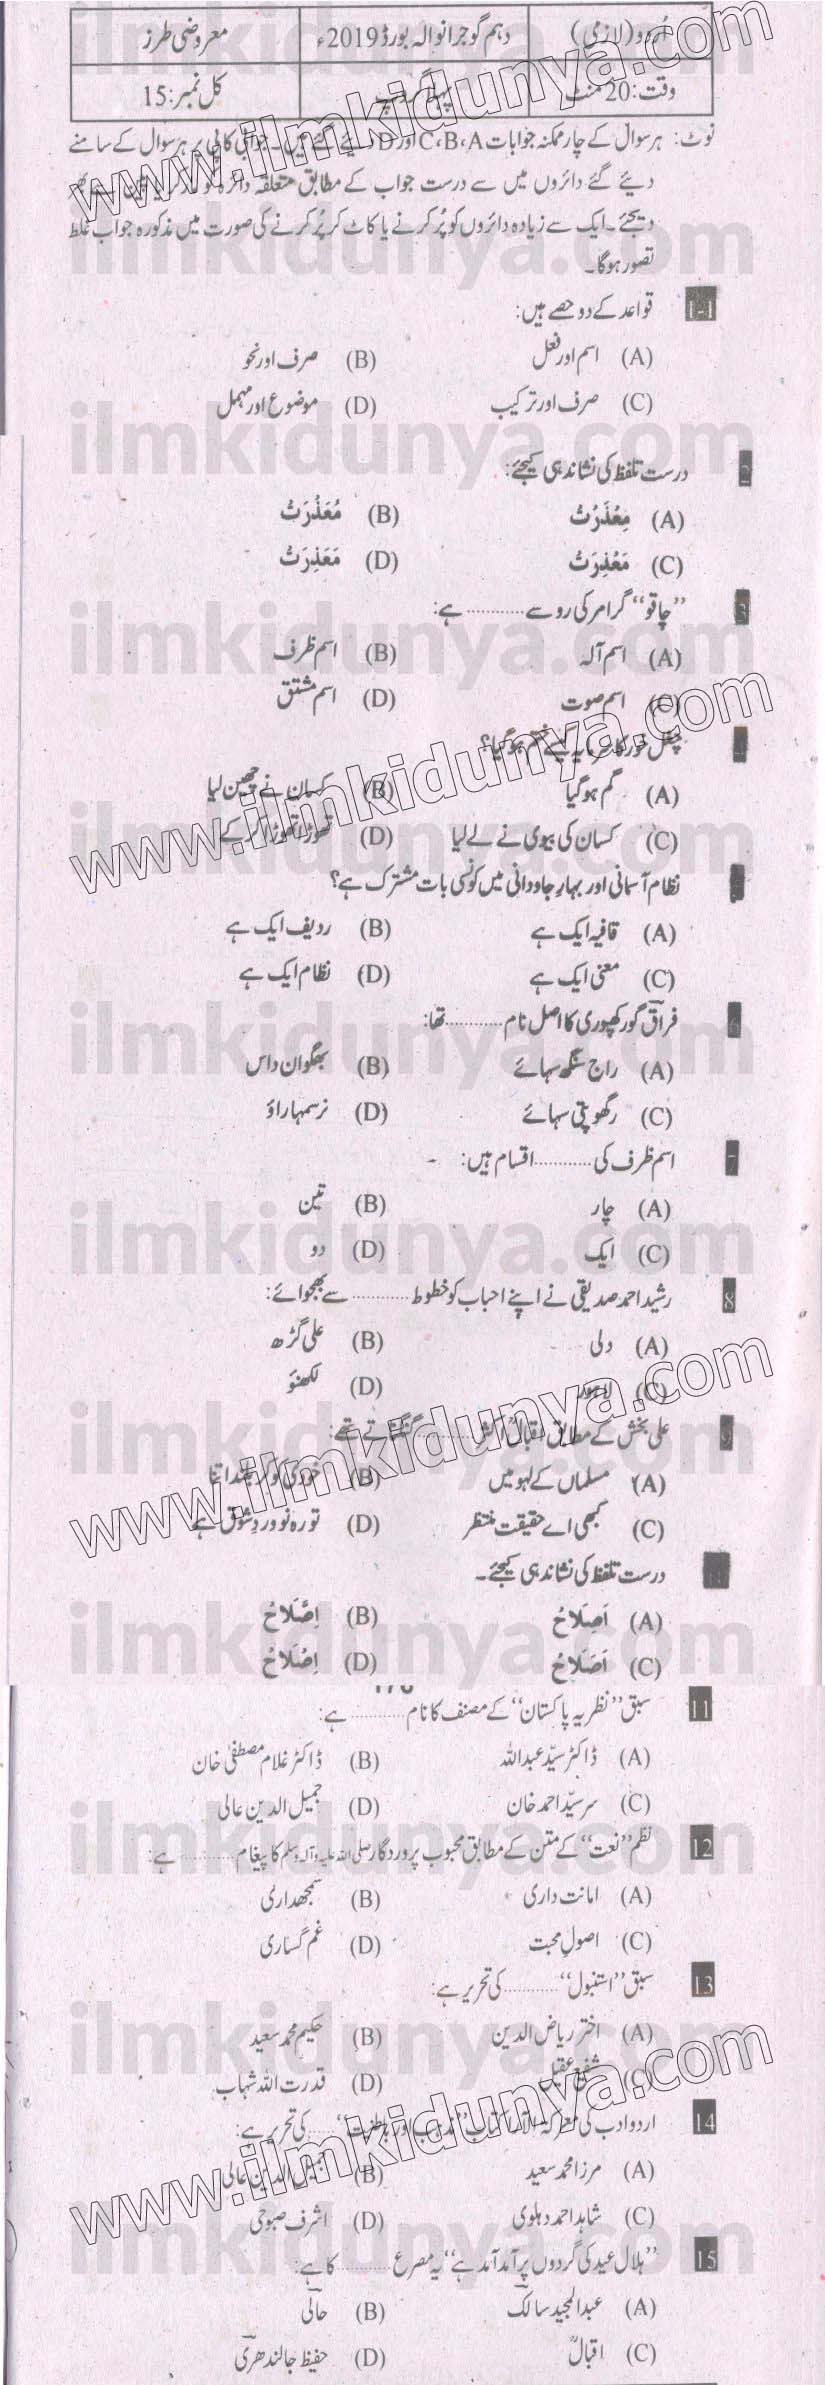 اُردو (لازمی) دہم گوجرانوالہ بورڈ 2019ء معروضی طرز
وقت: 20 منٹ پہلا گروپ کل نمبر: 15
نوٹ: ہر سوال کے چار ممکنہ جوابات C،B،A اور D دیئے گئے ہیں۔ جوابی کاپی پر ہر سوال کے سامنے
دیئے گئے دائروں میں سے درست جواب کے مطابق متعلقہ دائرہ کو
دیجئے۔ ایک سے زیادہ دائروں کو پُر کرنے یا کاٹ کر پُر کرنے کی صورت میں مذکورہ جواب غلط
تصور ہوگا۔
1-1 قواعد کے دو حصے ہیں:
(A) اسم اور فعل (B) صرف اور نحو
(C) صرف اور ترکیب (D) موضوع اور مہمل
2 درست تلفظ کی نشاندہی کیجئے:
(A) مِعْذَرْتْ (B) مُعَذْرَتْ
(C) مَعْذِرَتْ (D) مَعَذِرَتْ
3 ”چاقو“ گرامر کی رو سے ............ ہے:
(A) اسم آلہ (B) اسم ظرف
(C) اسم صوت (D) اسم مشتق
چغل خور کا سرمایہ کیسے ختم ہو گیا؟
(A) گم ہو گیا (B) کسان نے چھین لیا
(C) کسان کی بیوی نے لے لیا (D) تھوڑا تھوڑا کر کے
نظام آسمانی اور بہارِ جاودانی میں کونسی بات مشترک ہے؟
(A) قافیہ ایک ہے (B) ردیف ایک ہے
(C) معنی ایک ہے (D) نظام ایک ہے
6 فراقؔ گورکھپوری کا اصل نام ............ تھا:
(A) راج سنگھ سہائے (B) بھگوان داس
(C) رگھوپتی سہائے (D) نرسمہاراؤ
7 اسم ظرف کی ............ اقسام ہیں:
(A) چار (B) تین
(C) ایک (D) دو
8 رشید احمد صدیقی نے اپنے احباب کو خطوط ............ سے بھجوائے:
(A) دلی (B) علی گڑھ
(C) لاہور (D) لکھنؤ
9 علی بخش کے مطابق اقبالؒ ............ گنگناتے تھے:
(A) مسلماں کے لہو میں (B) خودی کو کر بلند اتنا
(C) کبھی اے حقیقت منتظر (D) تو رہ نوردِ شوق ہے
درست تلفظ کی نشاندہی کیجئے۔
(A) اَصِلَاحْ (B) اِصَّلَاحْ
(C) اَصَلَاحْ (D) اِصْلَاحْ
11 سبق ”نظریہ پاکستان“ کے مصنف کا نام ............ ہے:
(A) ڈاکٹر سیّد عبداللہ (B) ڈاکٹر غلام مصطفیٰ خان
(C) سر سیّد احمد خان (D) جمیل الدین عالی
12 نظم ”نعت“ کے متن کے مطابق محبوب پروردگار صلی اللہ علیہ وآلہ وسلم کا پیغام ............ ہے:
(A) امانت داری (B) سمجھداری
(C) اصولِ محبت (D) غم گساری
13 سبق ”استنبول“ ............ کی تحریر ہے:
(A) اختر ریاض الدین (B) حکیم محمد سعید
(C) شفیع عقیل (D) قدرت اللہ شہاب
14 اردو ادب کی معرکہ الآرا کتاب ”مذہب اور باطنیت“ ...... کی تحریر ہے:
(A) مرزا محمد سعید (B) جمیل الدین عالی
(C) شاہد احمد دہلوی (D) اشرف صبوحی
15 ”ہلال عید کی گردوں پر آمد آمد ہے“ یہ مصرع ............ کا ہے:
(A) عبدالمجید سالکؔ (B) حالیؔ
(C) اقبالؒ (D) حفیظ جالندھریؔ
www.ilmkidunya.com
ilmkidunya.com